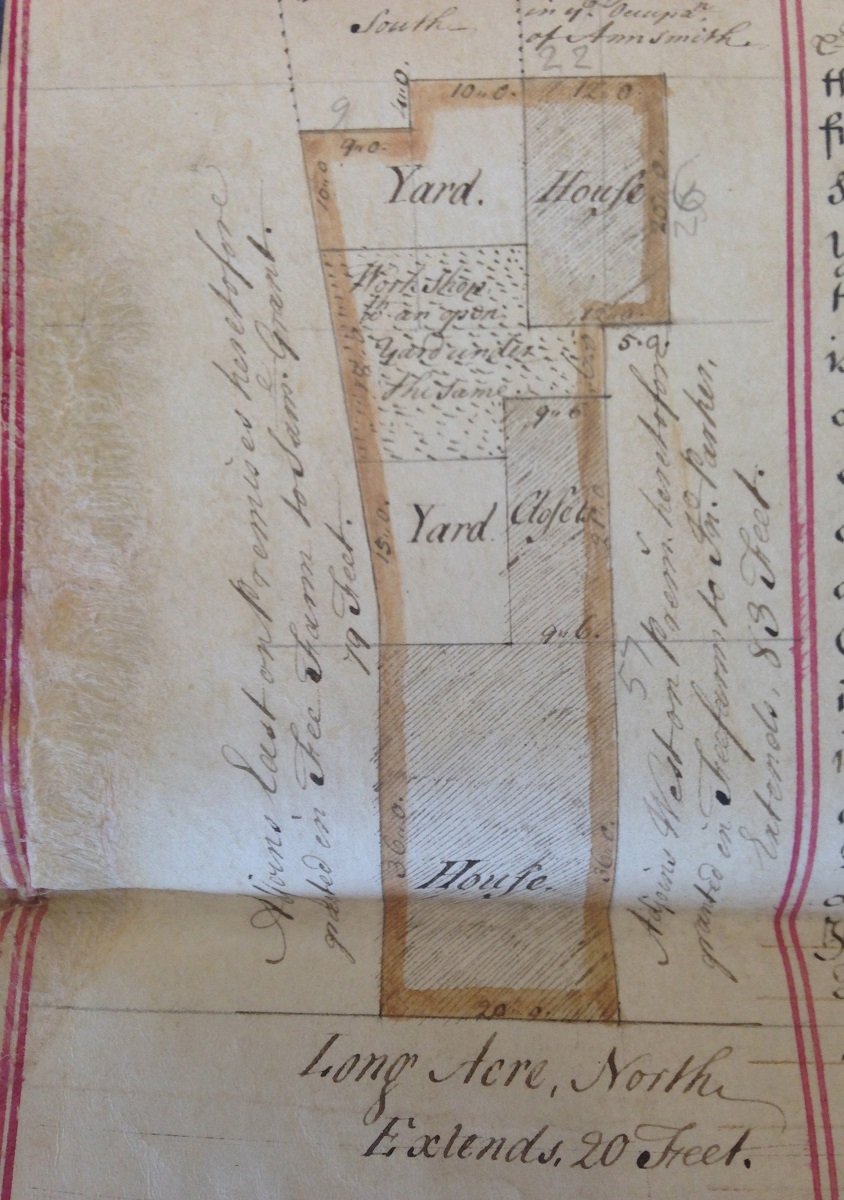 South
in yᵉ Occupaⁿ
of Annsmith
22
9
4„0.
10„0.
12„0.
9„0.
10„0
Yard.
House
20„0
26
Workshop
wᵗʰ an open
Yard under
the same
18„0
12„0.
5„0.
6„0
9„6
Yard
Closets
15„0.
21„0
9„6.
57
36„0.
36„0.
House.
20„0.
Adjoins East on Premises heretofore
granted in Fee Farm to Samˡ. Grant.
79 Feet.
Adjoins West on Premˢ. heretofore
granted in Feefarm to Jnº. Parker,
Extends, 83 Feet.
Long Acre, North
Extends, 20 Feet.